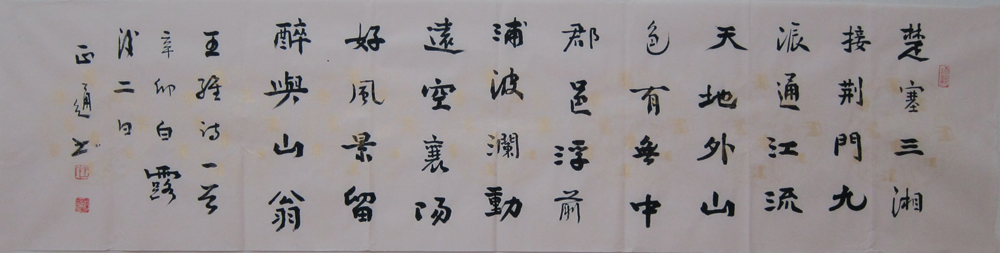 楚塞三湘
接荆門九
派通江流
天地外山
色有無中
郡邑浮前
浦波瀾動
遠空襄陽
好風景留
醉與山翁
王維詩一首
辛卯白露
後二日
正通书